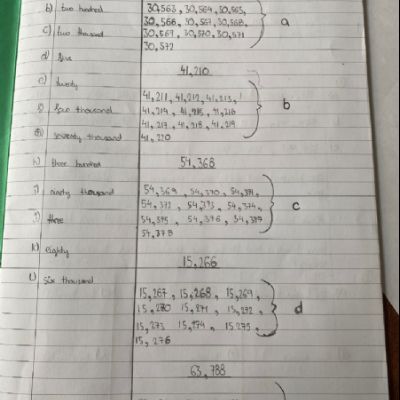 b) two hundred
30,563, 30,564, 30,565,
30,566, 30,567, 30,568,
c) two thousand
30,569, 30,570, 30,571
30,572
a
d) five
41,210
e) twenty
41,211, 41,212, 41,213,
f) four thousand
41,214, 41,215, 41,216
41,217, 41,218, 41,219
g) seventy thousand
41,220
b
h) three hundred
54,368
i) ninety thousand
54,369, 54,370, 54,371,
54,372, 54,373, 54,374,
j) three
54,375, 54,376, 54,377
54,378
c
k) eighty
15,266
l) six thousand
15,267, 15,268, 15,269,
15,270 15,271, 15,272,
15,273 15,274, 15,275,
15,276
d
63,788